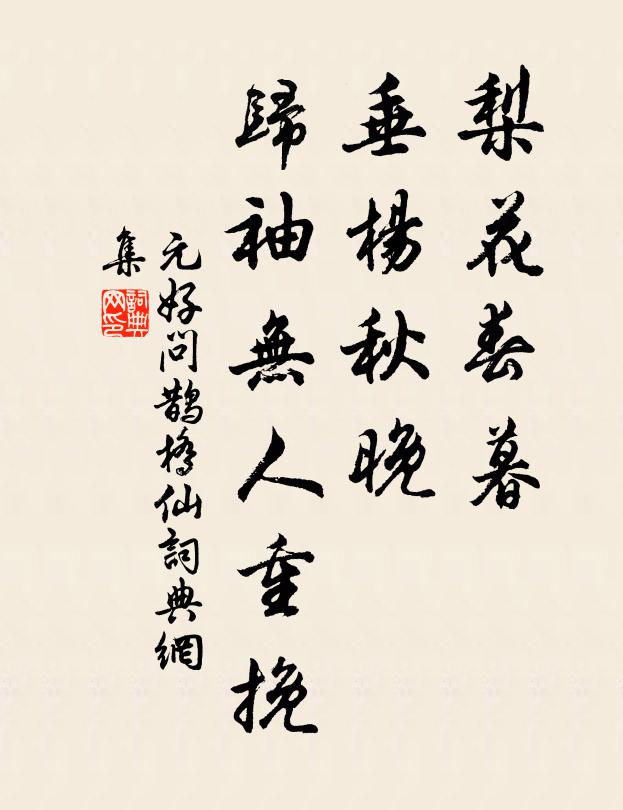 梨花春暮
垂楊秋晚
歸袖無人重挽
元好問鵲橋仙詞典網
集
詞典网印